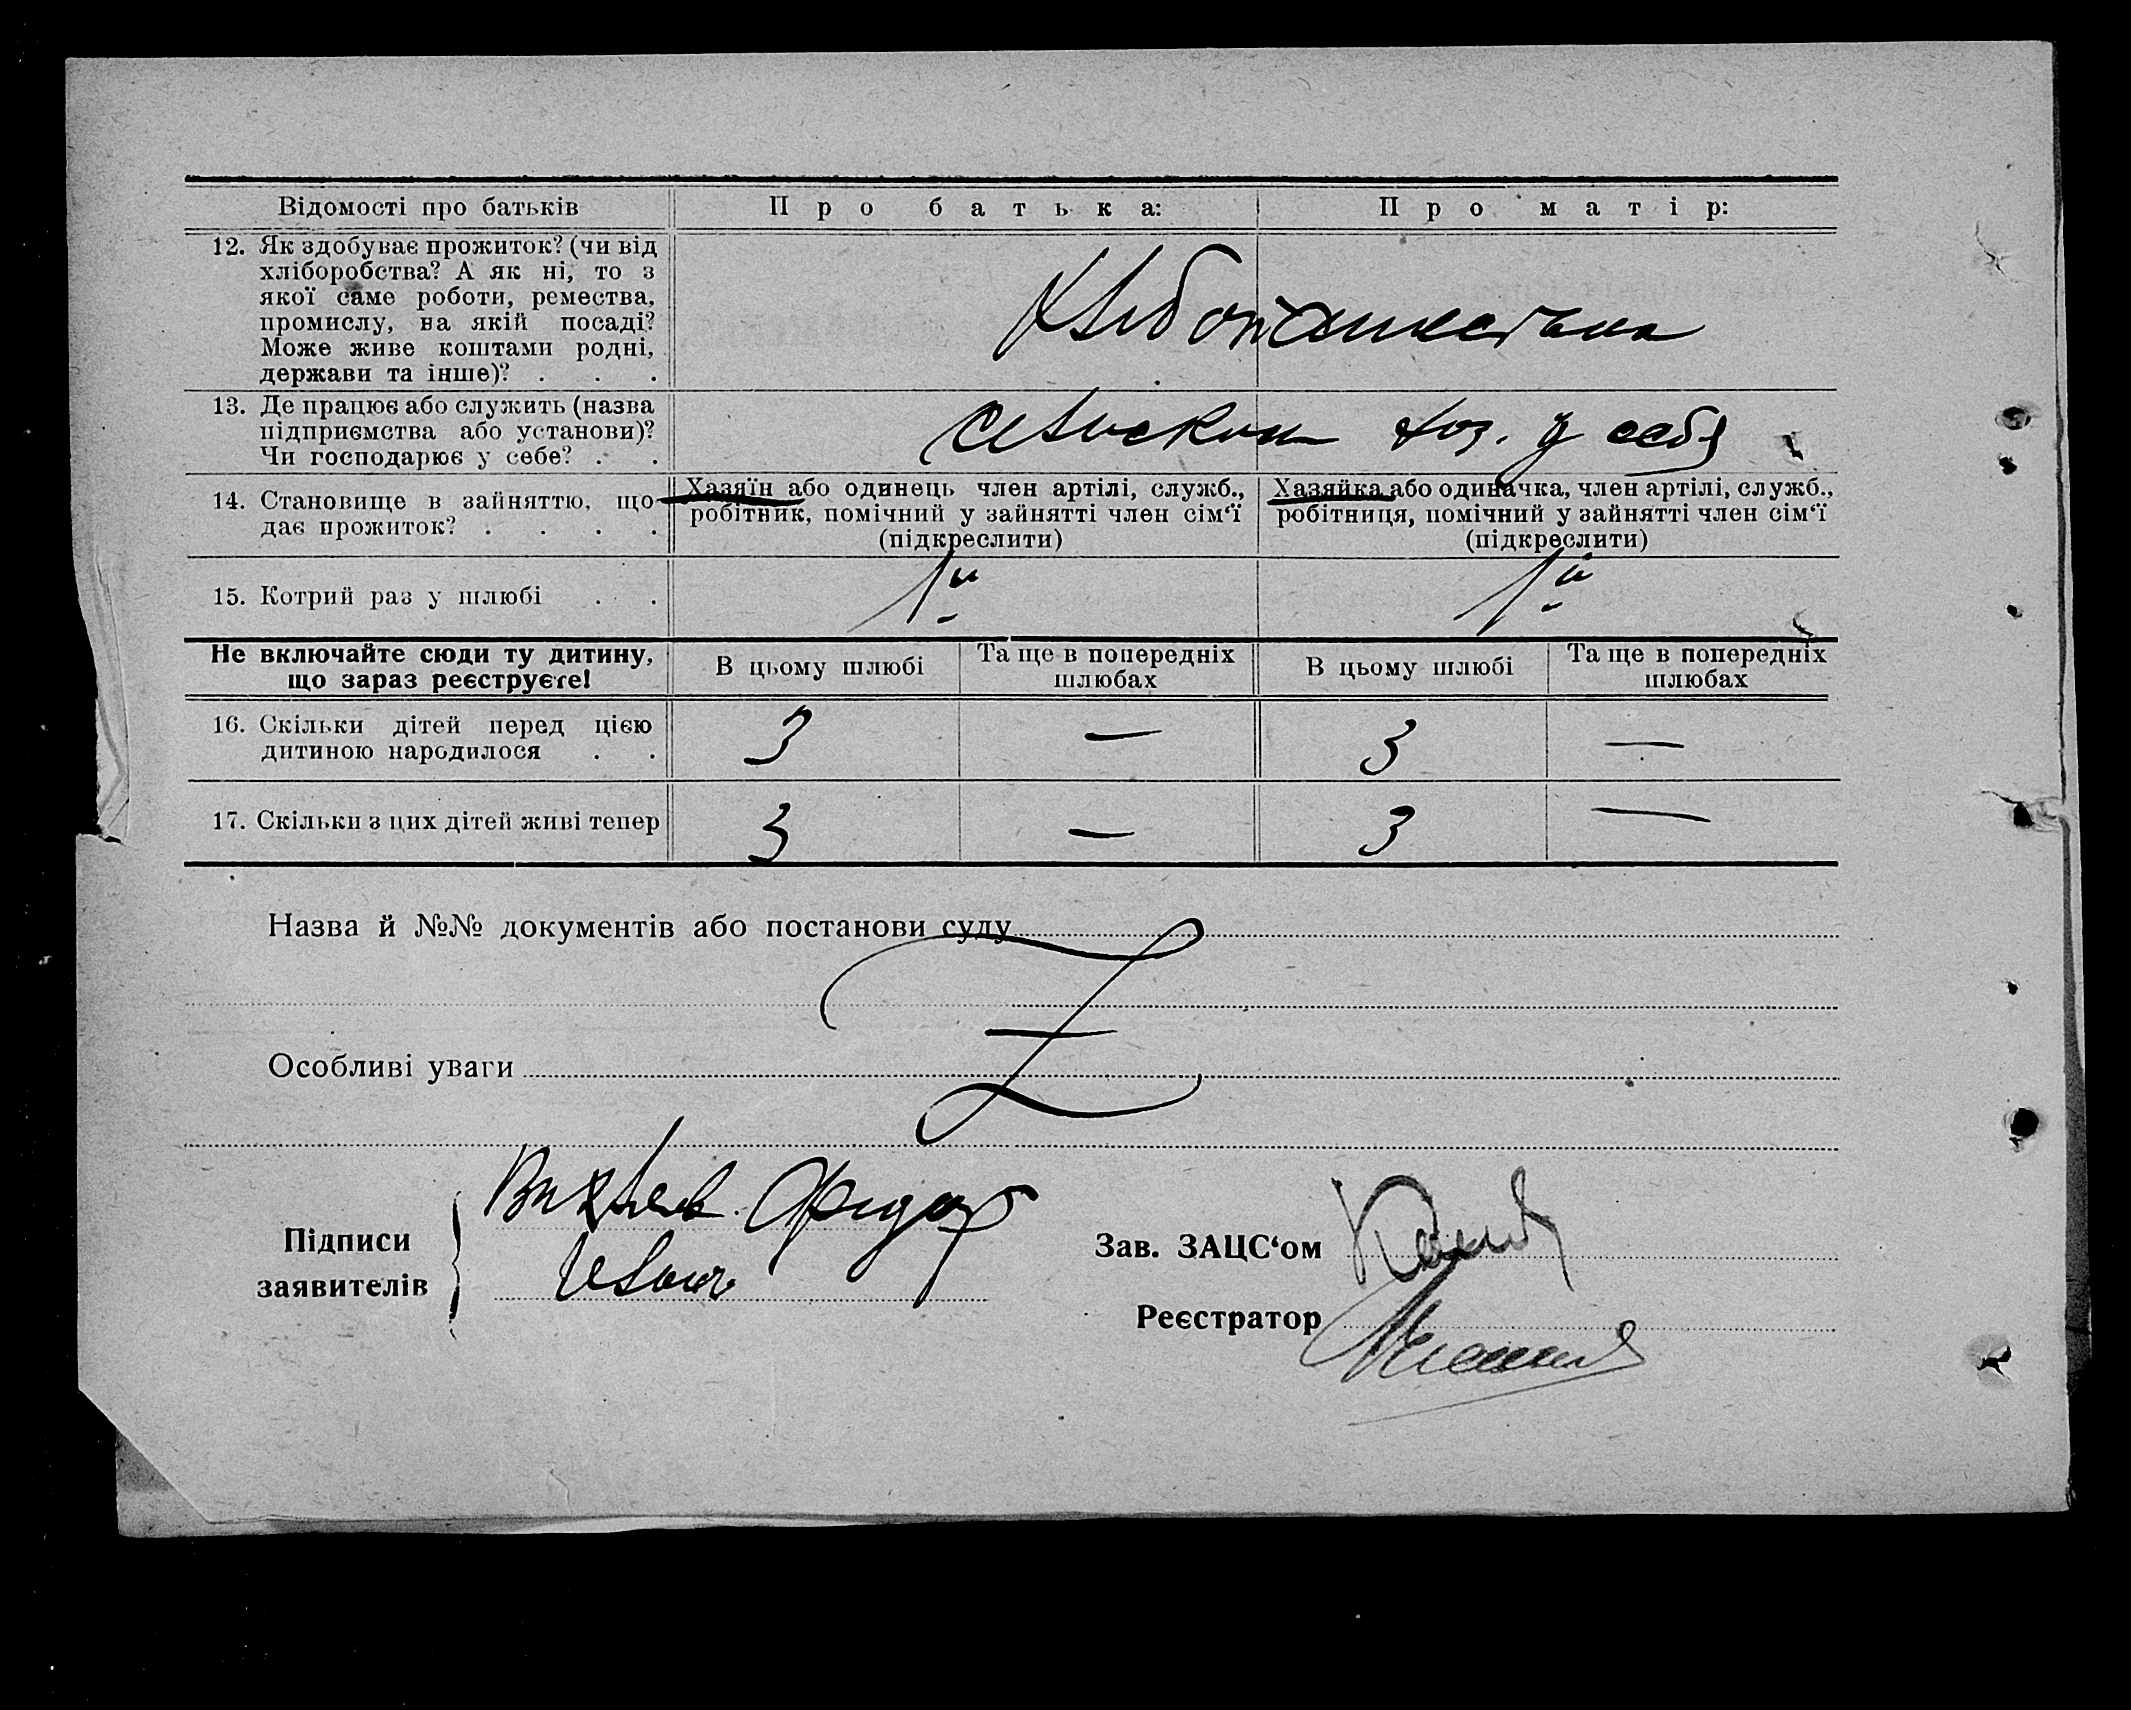 Відомості про батьків
Про батька:
Про матір:
12. Як здобуває прожиток? (чи від
хліборобства? А як ні, то з
якої саме роботи, ремества,
промислу, на якій посаді?
Може живе коштами родні,
держави та інше)? . . .
13. Де працює або служить (назва
підприємства або установи)?
Чи господарює у себе? . .
хоз. у себя
14. Становище в зайняттю, що
дає прожиток? . . . .
Хазяїн або одинець член артілі, служб.,
робітник, помічний у зайнятті член сім‘ї
(підкреслити)
Хазяйка або одиначка, член артілі, служб.,
робітниця, помічний у зайнятті член сім‘ї
(підкреслити)
15. Котрий раз у шлюбі . .
1й
1й
Не включайте сюди ту дитину,
що зараз реєструєте!
В цьому шлюбі
Та ще в попередніх
шлюбах
В цьому шлюбі
Та ще в попередніх
шлюбах
16. Скільки дітей перед цією
дитиною народилося . .
3 — 3 —
17. Скільки з цих дітей живі тепер
3 — 3 —
Назва й №№ документів або постанови суду
Особливі уваги
Підписи
заявителів
Зав. ЗАЦС‘ом
Реєстратор